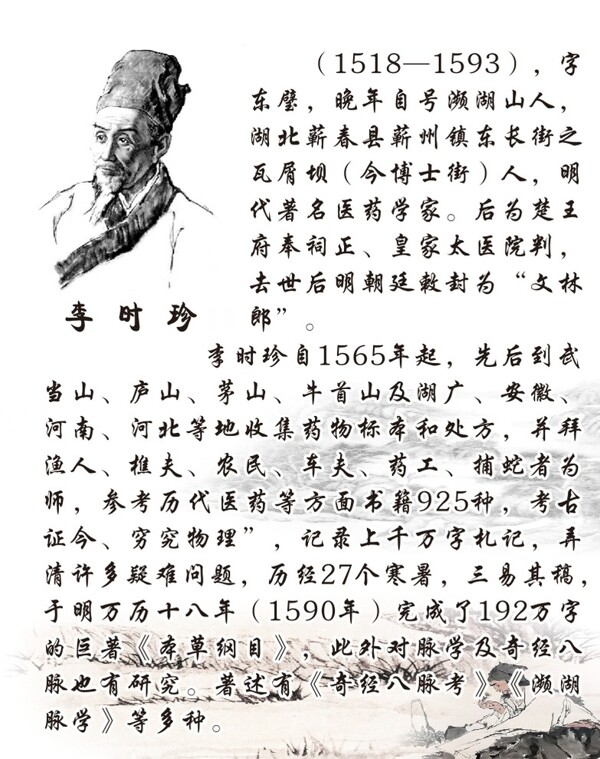 （1518—1593），字
东璧，晚年自号濒湖山人，
湖北蕲春县蕲州镇东长街之
瓦屑坝（今博士街）人，明
代著名医药学家。后为楚王
府奉祠正、皇家太医院判，
去世后明朝廷敕封为“文林
郎”。
李时珍
李时珍自1565年起，先后到武
当山、庐山、茅山、牛首山及湖广、安徽、
河南、河北等地收集药物标本和处方，并拜
渔人、樵夫、农民、车夫、药工、捕蛇者为
师，参考历代医药等方面书籍925种，考古
证今、穷究物理”，记录上千万字札记，弄
清许多疑难问题，历经27个寒暑，三易其稿，
于明万历十八年（1590年）完成了192万字
的巨著《本草纲目》，此外对脉学及奇经八
脉也有研究。著述有《奇经八脉考》《濒湖
脉学》等多种。